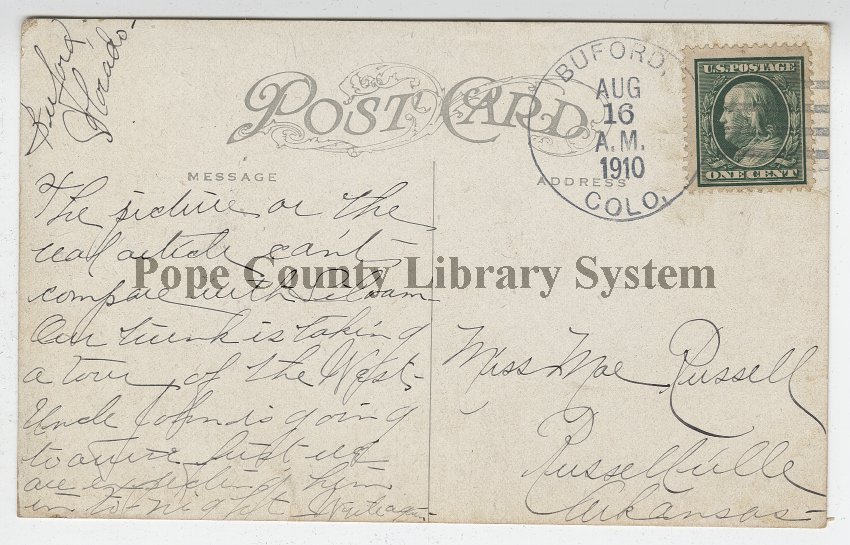 Buford
Colorado-
POST CARD
MESSAGE
ADDRESS
BUFORD,
AUG
16
A.M.
1910
COLO.
U.S. POSTAGE
ONE CENT
The picture or the
real article can't
compare with Siloam
Our trunk is taking
a tour of the West,
Uncle John is going
to arrive
are expecting him
in to-night
Pope County Library System
Miss Mae Russell
Russellville
Arkansas-